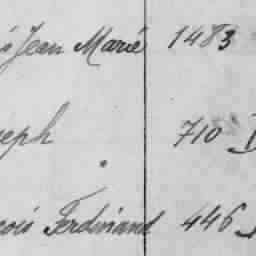 Jean Marie 1483
eph 710
Ferdinand 446